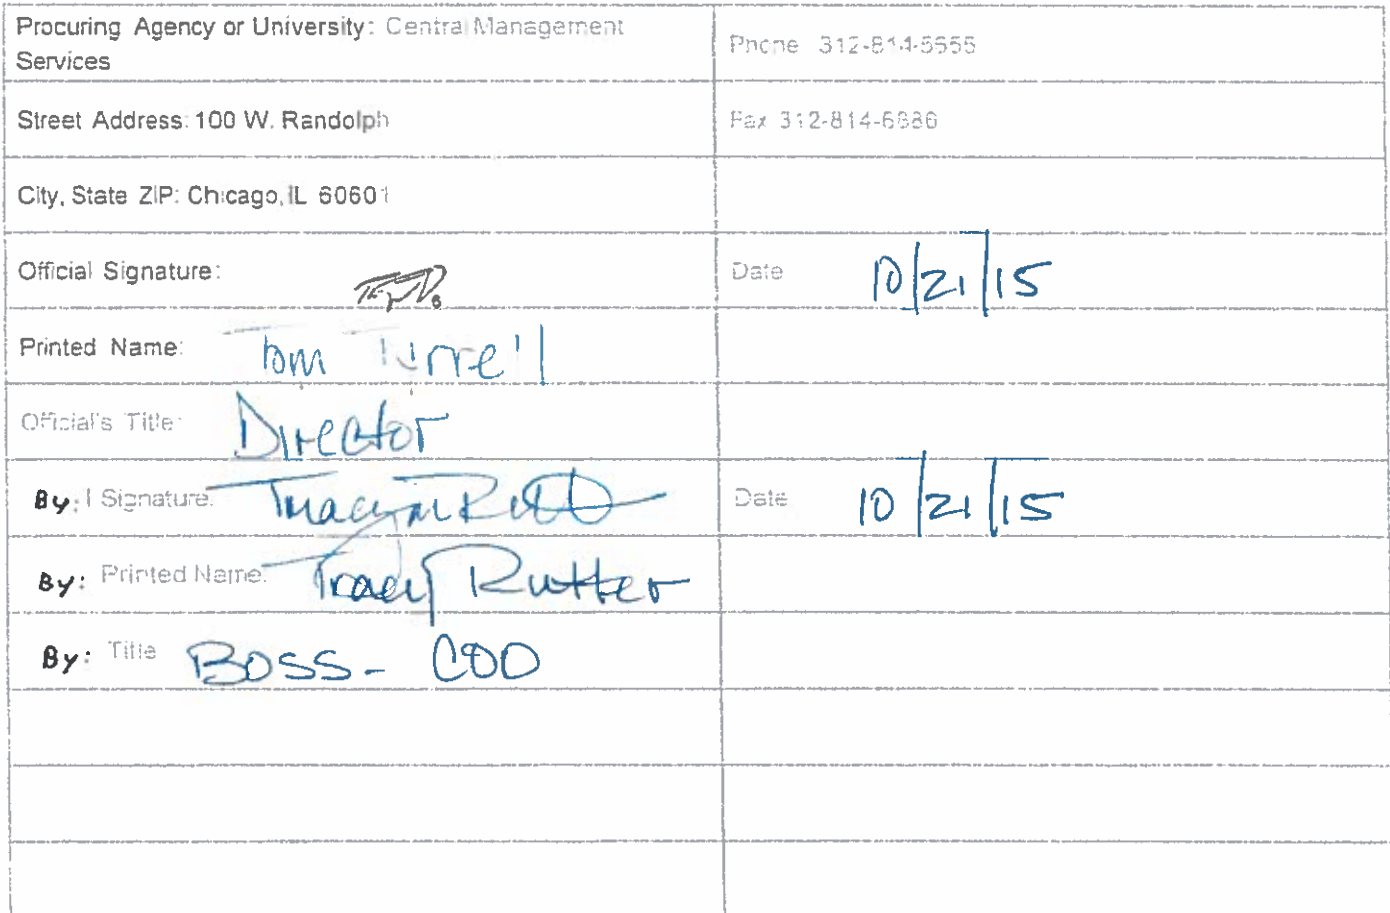 Procuring Agency or University: Central Management
Services
Phone 312-814-5555
Street Address: 100 W. Randolph
Fax 312-814-6886
City, State ZIP: Chicago, IL 60601
Official Signature:
Date 10/21/15
Printed Name: Tom Tyrrell
Official's Title: Director
By: Signature: Tracy Rutter
Date 10/21/15
By: Printed Name: Tracy Rutter
By: Title BOSS - COO